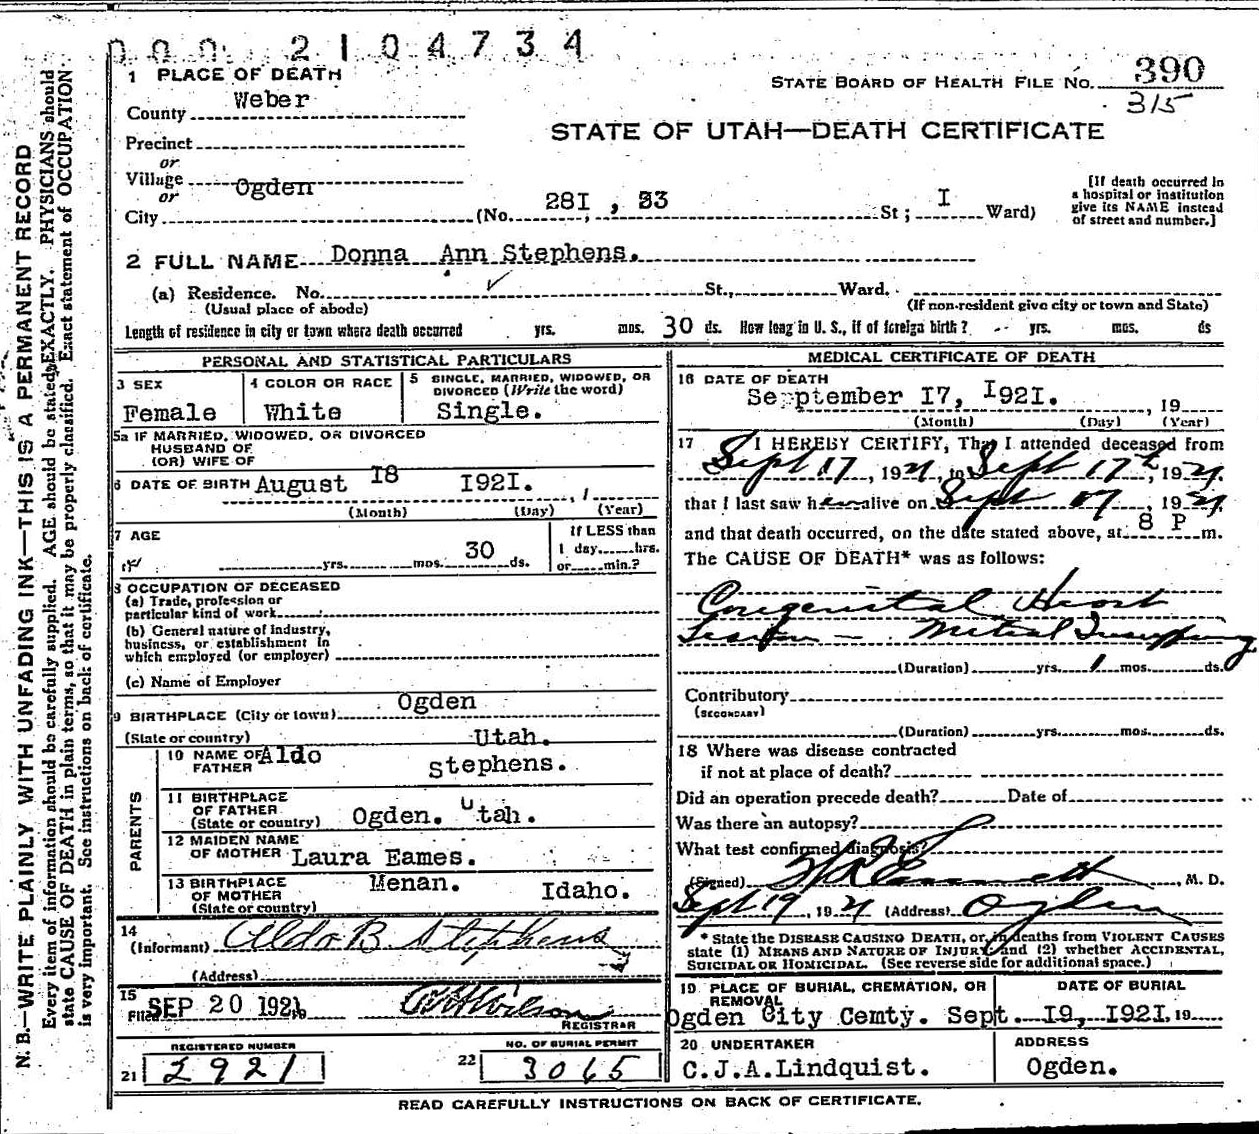 000 2104734
1 PLACE OF DEATH
STATE BOARD OF HEALTH FILE NO. 390
County Weber
315
STATE OF UTAH—DEATH CERTIFICATE
Precinct
or
Village Ogden
or
City (No. 281, 33 St; I Ward)
[If death occurred in
a hospital or institution
give its NAME instead
of street and number.]
2 FULL NAME Donna Ann Stephens.
(a) Residence. No. St., Ward.
(Usual place of abode) (If non-resident give city or town and State)
Length of residence in city or town where death occurred yrs. mos. 30 ds. How long in U. S., if of foreign birth? yrs. mos. ds
PERSONAL AND STATISTICAL PARTICULARS
3 SEX
Female
4 COLOR OR RACE
White
5 SINGLE, MARRIED, WIDOWED, OR
DIVORCED (Write the word)
Single.
5a IF MARRIED, WIDOWED, OR DIVORCED
HUSBAND OF
(OR) WIFE OF
6 DATE OF BIRTH August I8 I92I.
(Month) (Day) (Year)
7 AGE
yrs. mos. 30 ds.
If LESS than
1 day hrs.
or min.?
8 OCCUPATION OF DECEASED
(a) Trade, profession or
particular kind of work
(b) General nature of industry,
business, or establishment in
which employed (or employer)
(c) Name of Employer
9 BIRTHPLACE (City or town) Ogden
(State or country) Utah.
PARENTS
10 NAME OF FATHER Aldo Stephens.
11 BIRTHPLACE
OF FATHER
(State or country) Ogden. Utah.
12 MAIDEN NAME
OF MOTHER Laura Eames.
13 BIRTHPLACE
OF MOTHER
(State or country) Menan. Idaho.
14
(Informant) Aldo B Stephens
(Address)
15
Filed SEP 20 1921 Wilson
REGISTRAR
REGISTERED NUMBER
21 2921
NO. OF BURIAL PERMIT
22 3065
MEDICAL CERTIFICATE OF DEATH
16 DATE OF DEATH
September I7, I92I. , 19
(Month) (Day) (Year)
17 I HEREBY CERTIFY, That I attended deceased from
Sept 17, 1921, to Sept 17th, 1921
that I last saw her alive on Sept 17, 1921
and that death occurred, on the date stated above, at 8 P m.
The CAUSE OF DEATH* was as follows:
Congenital Heart
Lesion — Mitral
(Duration) yrs. 1 mos. ds.
Contributory
(SECONDARY)
(Duration) yrs. mos. ds.
18 Where was disease contracted
if not at place of death?
Did an operation precede death? Date of
Was there an autopsy?
What test confirmed diagnosis?
(Signed) , M. D.
Sept 19, 1921 (Address) Ogden
* State the DISEASE CAUSING DEATH, or, in deaths from VIOLENT CAUSES
state (1) MEANS AND NATURE OF INJURY; and (2) whether ACCIDENTAL,
SUICIDAL OR HOMICIDAL. (See reverse side for additional space.)
19 PLACE OF BURIAL, CREMATION, OR
REMOVAL
Ogden City Cemty.
DATE OF BURIAL
Sept. I9, I92I. 19
20 UNDERTAKER
C.J.A.Lindquist.
ADDRESS
Ogden.
READ CAREFULLY INSTRUCTIONS ON BACK OF CERTIFICATE.
N. B.—WRITE PLAINLY WITH UNFADING INK—THIS IS A PERMANENT RECORD
Every item of information should be carefully supplied. AGE should be stated EXACTLY. PHYSICIANS should
state CAUSE OF DEATH in plain terms, so that it may be properly classified. Exact statement of OCCUPATION
is very important. See instructions on back of certificate.